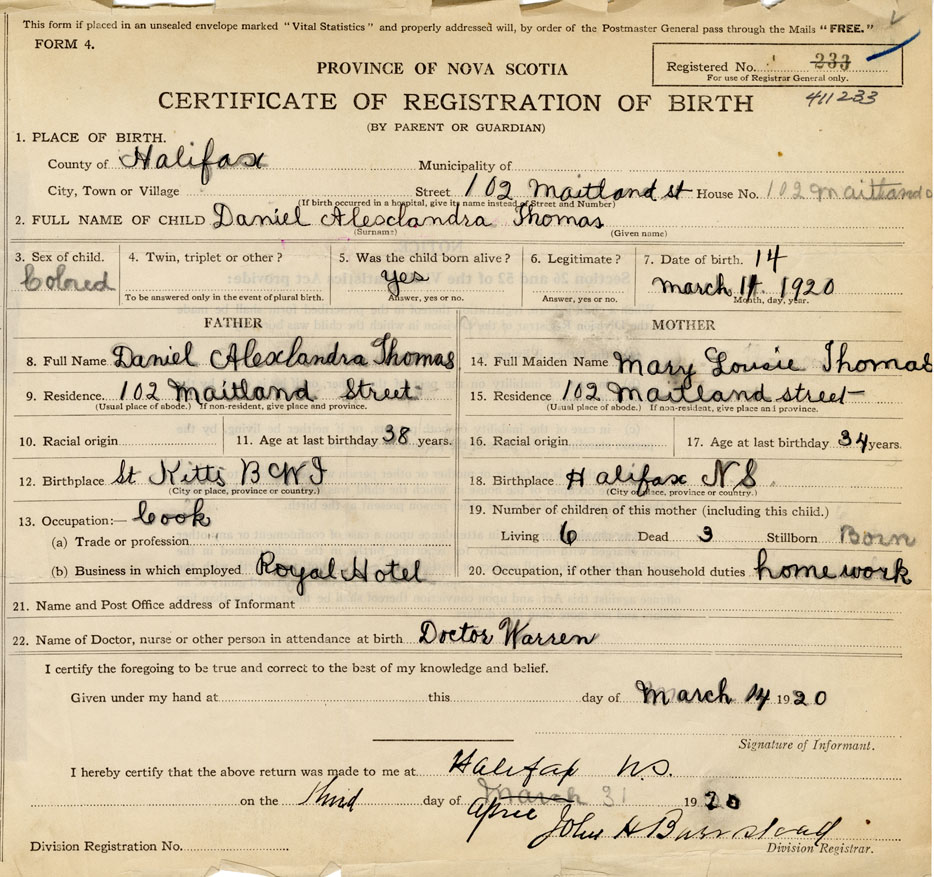 This form if placed in an unsealed envelope marked "Vital Statistics" and properly addressed will, by order of the Postmaster General pass through the Mails "FREE."
FORM 4.
Registered No. 233
For use of Registrar General only.
PROVINCE OF NOVA SCOTIA
CERTIFICATE OF REGISTRATION OF BIRTH 411233
(BY PARENT OR GUARDIAN)
1. PLACE OF BIRTH.
County of Halifax Municipality of
City, Town or Village Street 102 Maitland st House No. 102 Maitland
(If birth occurred in a hospital, give its name instead of Street and Number)
2. FULL NAME OF CHILD Daniel Alexlandra Thomas
(Surname) (Given name)
3. Sex of child. 4. Twin, triplet or other? 5. Was the child born alive? 6. Legitimate? 7. Date of birth. 14
Colored yes March 14. 1920
To be answered only in the event of plural birth. Answer, yes or no. Answer, yes or no. Month, day, year.
FATHER MOTHER
8. Full Name Daniel Alexlandra Thomas 14. Full Maiden Name Mary Lousie Thomas
9. Residence. 102 Maitland Street 15. Residence 102 Maitland street
(Usual place of abode.) If non-resident, give place and province. (Usual place of abode.) If non-resident, give place and province.
10. Racial origin 11. Age at last birthday 38 years. 16. Racial origin 17. Age at last birthday 34 years.
12. Birthplace St Kitts B W I 18. Birthplace Halifax N S.
(City or place, province or country.) (City or place, province or country.)
13. Occupation:— Cook 19. Number of children of this mother (including this child.)
(a) Trade or profession Living 6 Dead 3 Stillborn Born
(b) Business in which employed Royal Hotel 20. Occupation, if other than household duties home work
21. Name and Post Office address of Informant
22. Name of Doctor, nurse or other person in attendance at birth Doctor Warren
I certify the foregoing to be true and correct to the best of my knowledge and belief.
Given under my hand at this day of March 14 1920
Signature of Informant.
I hereby certify that the above return was made to me at Halifax N.S.
on the third day of March 31 1920
April John H Barnstead
Division Registration No. Division Registrar.